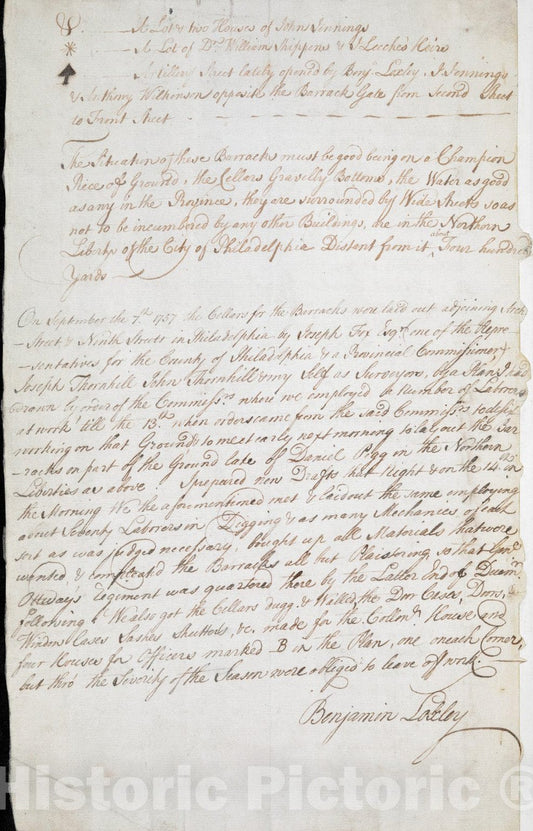 A Lot & two Houses of John Jennings
A Lot of Dr. William Shippen & J Leeches Heirs
Artillery Street lately opend by Benjn. Loxley, J. Jennings
& Anthony Wilkinson opposit the Barrack Gate from Second Street
to Front Street
The Situation of these Barracks must be good being on a Champion
Piece of Ground, the Cellars Gravelly Bottoms, the Water as good
as any in the Province, they are surrounded by Wide Streets so as
not to be incumbered by any other Buildings, are in the Northern
Libertys of the City of Philadelphia Distant from it about Four hundred
Yards
On September the 7th. 1757 the Cellars for the Barracks were laid out adjoining Arch
Street & Ninth Streets in Philadelphia by Joseph Fox Esqr. (one of the Repre
sentatives for the County of Philadelphia & a Provincial Commissioner)
Joseph Thornhill John Thornhill & my Self as Surveyors, by a Plan I had
drawn by order of the Commissrs. where we employed a Number of Laborers
at work till the 13th. when orders came from the said Commissrs. to desist
working on that Ground & to meet early next morning to lay out the Bar
racks on part of the Ground late of Daniel Pegg in the Northern
Liberties as above I prepared new Drafts that Night & on the 14th. in
the Morning We the aforementioned met & laid out the same employing
about Seventy Laborers in Digging & as many Mechanics of each
sort as was judged necessary. bought up all Materials that were
wanted & compleated the Barracks all but Plaistering so that
Otteways Regiment was quartered there by the Latter End of
following. We also got the Cellars dugg & Walled, the Door Cases, Doors, &
Window Cases Sashes Shutters, &c. made for the House and
four Houses for Officers marked B in the Plan, one on each Corner,
but thro' the Severity of the Season were obliged to leave off work.
Benjamin Loxley
Historic Pictoric ®